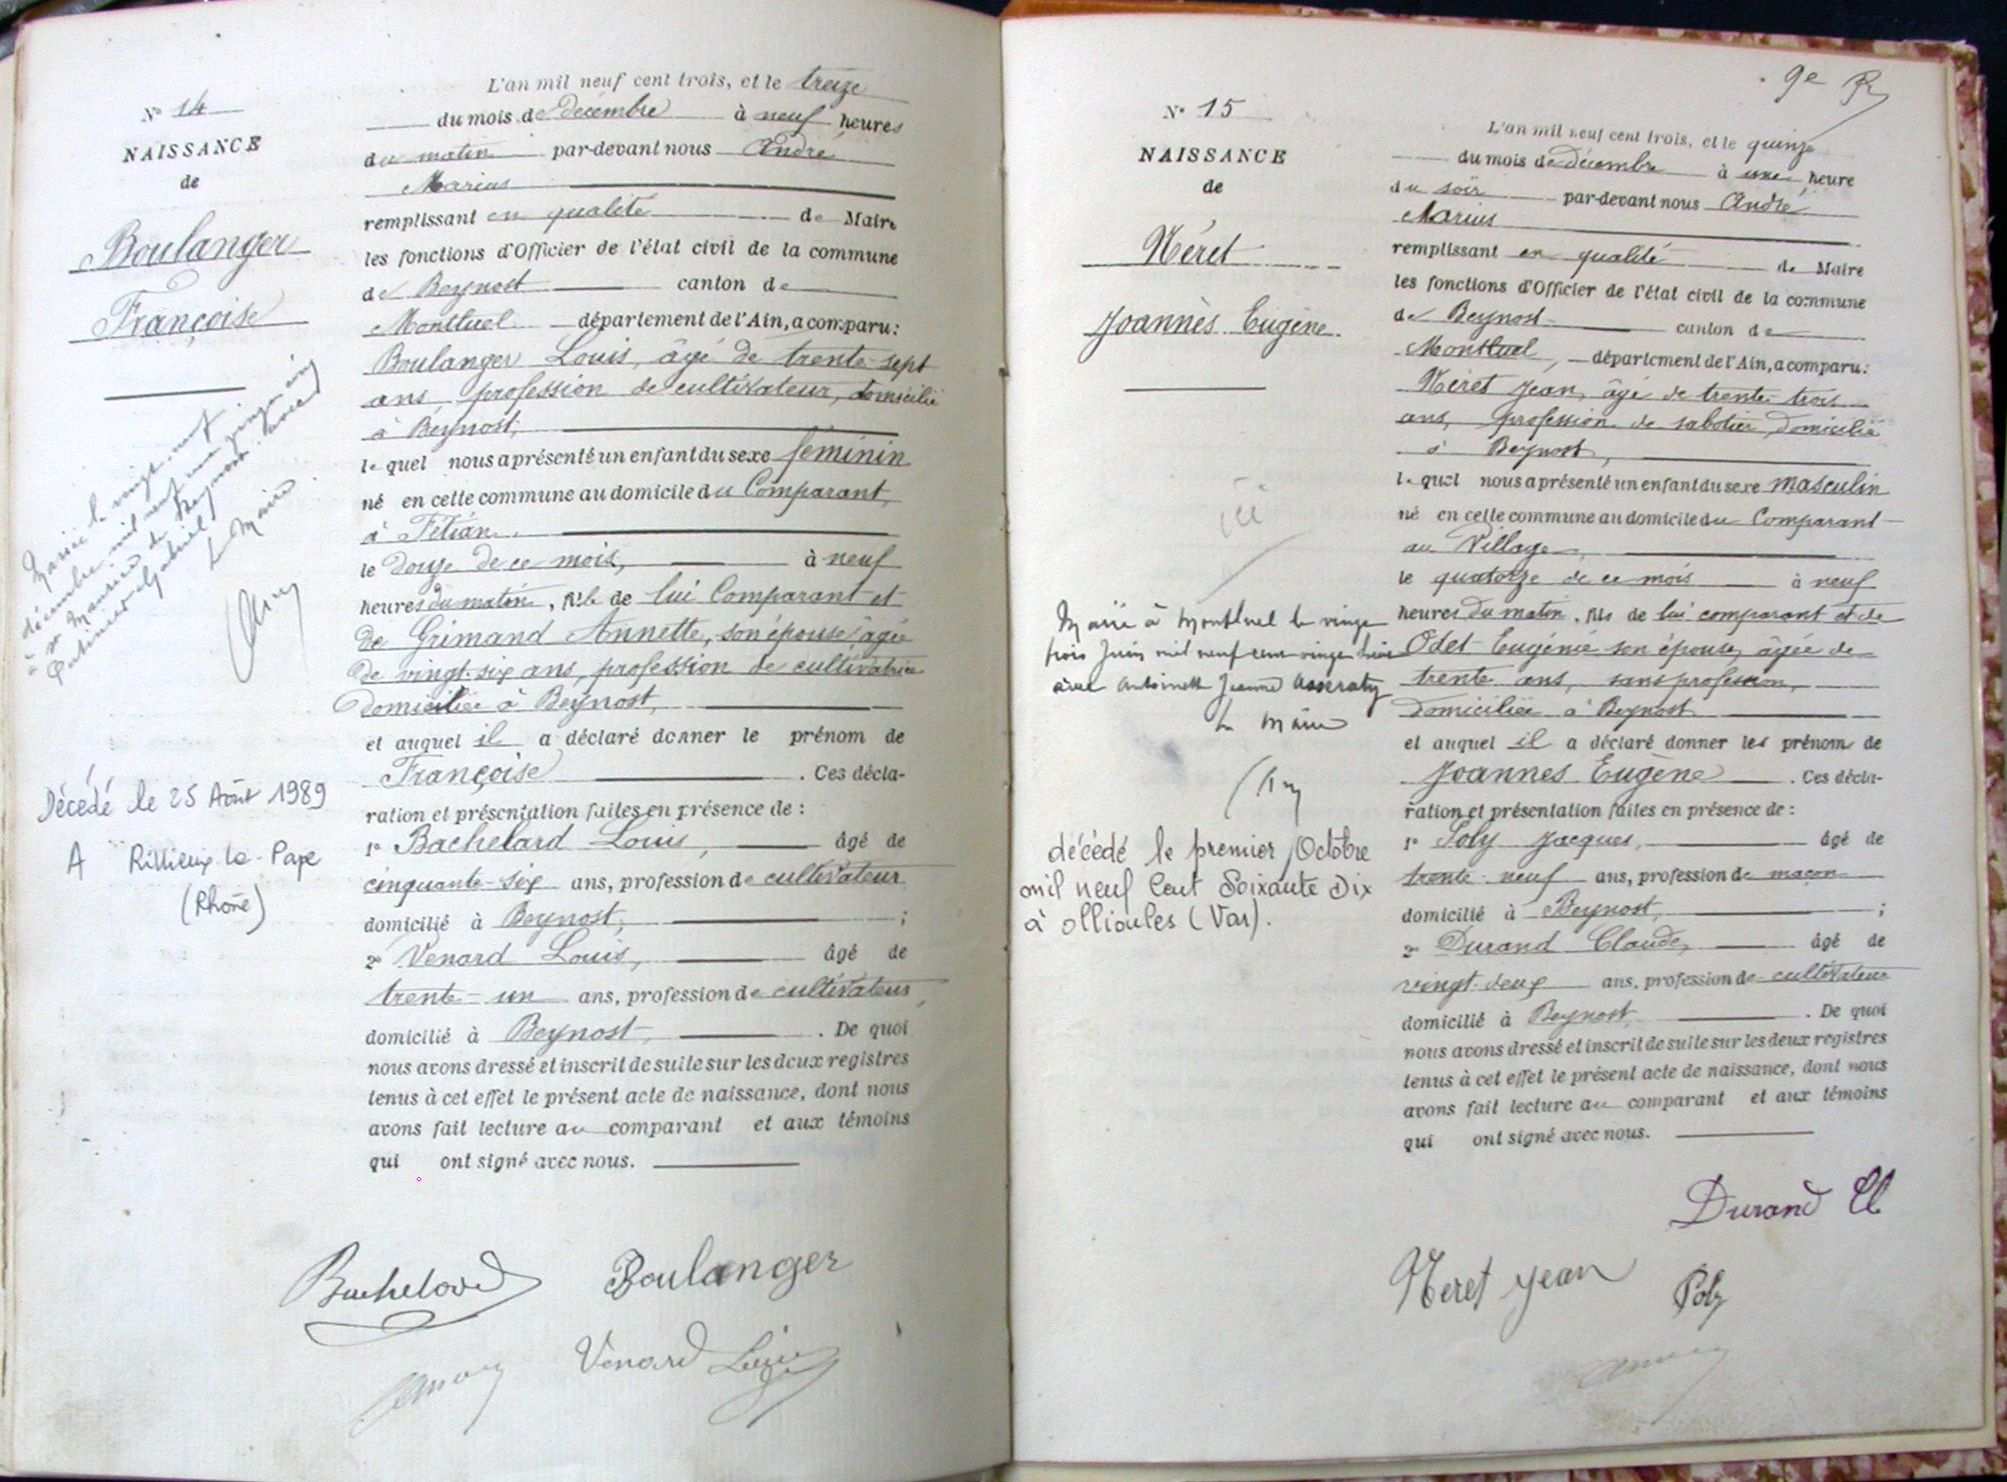 N° 14
NAISSANCE
de
Boulanger
Françoise
Mariée le vingt-neuf
décembre mil neuf cent vingt cinq
à Beynost (avec)
Gabriel
Le Maire
Décédé le 25 Août 1989
A Rillieux-la-Pape
(Rhône)
L'an mil neuf cent trois, et le treize
du mois de décembre à neuf heures
du matin par-devant nous André
Marius
remplissant en qualité de Maire
les fonctions d'Officier de l'état civil de la commune
de Beynost canton de
Montluel département de l'Ain, a comparu:
Boulanger Louis, âgé de trente-sept
ans profession de cultivateur, domicilié
à Beynost,
le quel nous a présenté un enfant du sexe féminin
né en cette commune au domicile du Comparant,
à Fétian.
le douze de ce mois, à neuf
heures du matin, fille de lui Comparant et
de Grimand Annette, son épouse âgée
de vingt-six ans, profession de cultivatrice
domiciliée à Beynost,
et auquel il a déclaré donner le prénom de
Françoise. Ces décla-
ration et présentation faites en présence de:
1° Bachelard Louis, âgé de
cinquante-six ans, profession de cultivateur
domicilié à Beynost, ;
2° Venard Louis, âgé de
trente-un ans, profession de cultivateur,
domicilié à Beynost, . De quoi
nous avons dressé et inscrit de suite sur les deux registres
tenus à cet effet le présent acte de naissance, dont nous
avons fait lecture au comparant et aux témoins
qui ont signé avec nous.
Bachelard Boulanger
Venard Louis
9e
N° 15
NAISSANCE
de
Néret
Joannès Eugène
Marié à Montluel le vingt
trois Juin mil neuf cent vingt huit
avec Antoinette Jeanne
Le Maire
décédé le premier Octobre
mil neuf Cent Soixante Dix
à Ollioules (Var).
L'an mil neuf cent trois, et le quinze
du mois de décembre à une heure
du soir par-devant nous André
Marius
remplissant en qualité de Maire
les fonctions d'Officier de l'état civil de la commune
de Beynost canton de
Montluel, département de l'Ain, a comparu:
Néret Jean, âgé de trente-trois
ans, profession de sabotier domicilié
à Beynost,
le quel nous a présenté un enfant du sexe masculin
né en cette commune au domicile du Comparant
au Village,
le quatorze de ce mois à neuf
heures du matin, fils de lui comparant et de
Odet Eugénie son épouse, âgée de
trente ans, sans profession,
domiciliée à Beynost
et auquel il a déclaré donner les prénoms de
Joannès Eugène. Ces décla-
ration et présentation faites en présence de:
1° Poly Jacques, âgé de
trente-neuf ans, profession de maçon
domicilié à Beynost, ;
2° Durand Claude, âgé de
vingt-deux ans, profession de cultivateur
domicilié à Beynost. De quoi
nous avons dressé et inscrit de suite sur les deux registres
tenus à cet effet le présent acte de naissance, dont nous
avons fait lecture au comparant et aux témoins
qui ont signé avec nous.
Durand Cl
Neret Jean Poly